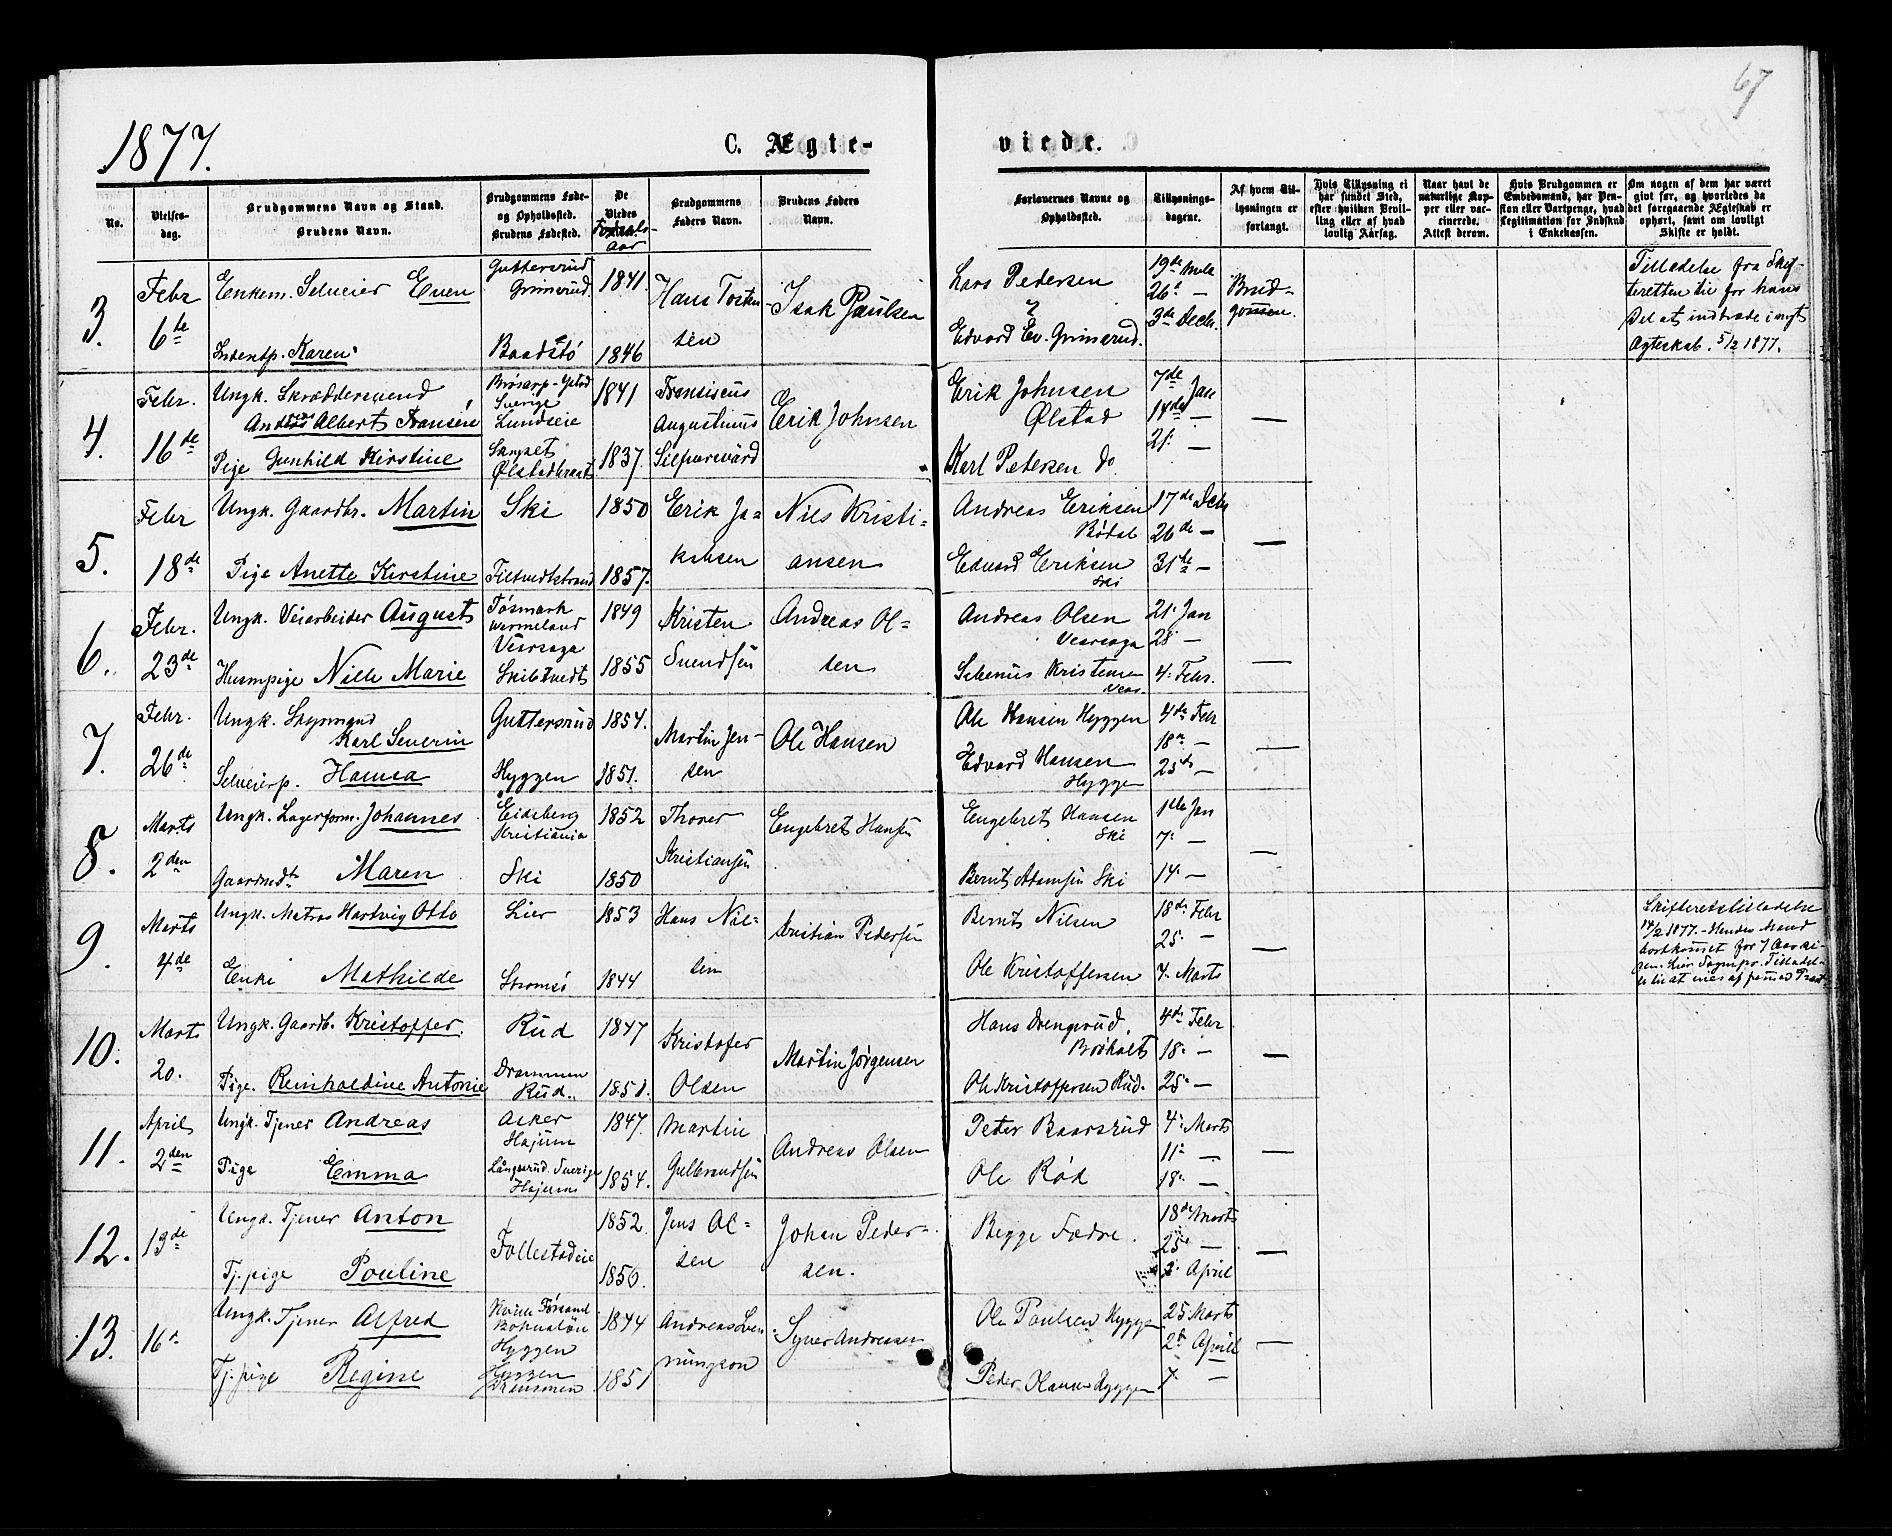 67
1877.
C. Ægte-
viede.
No.
Vielses-
dag.
Brudgommens Navn og Stand.
Brudens Navn.
Brudgommens Føde-
og Opholdssted.
Brudens Fødested.
De
Viedes
Fødsels-
aar
Brudgommens
Faders Navn.
Brudens Faders
Navn.
Forlovernes Navne og
Opholdssted.
Tillysnings-
dagene.
Af hvem Til-
lysningen er
forlangt.
Hvis Tillysning ei
har fundet Sted,
efter hvilken Bevil-
ling eller af hvad
lovlig Aarsag.
Naar havt de
naturlige Kop-
per eller vac-
cinerede,
Attest derom.
Hvis Brudgommen er
Embedsmand, har Pen-
sion eller Vartpenge, hvad
Legitimation for Indskud
i Enkekassen.
Om nogen af dem har været
givt før, og hvorledes da
det foregaaende Ægteskab er
ophørt, samt om lovligt
Skifte er holdt.
3.
Febr
6te
Enkem. Selveier Even
Karen
Guttersrud
Grimsrud.
Baadstø
1841.
1846
Hans Tosten-
sen
Isak Paulsen
Lars Pedersen
Edvard Ev. Grimsrud.
19de
26d —
3de Decbr.
Brud-
gommen.
Tilladelse fra Skif-
teretten til for hans
Del at indtræde i nyt
Ægteskab. 5/2 1877.
4.
Febr.
16de
Ungk. Skræddersvend
Albert Fransén
Pige Gunhild Kirstine
Brösarp - Ystad
Sverige
Lundeie
Ølstad
1841
1837.
Fransiscus
Augustinus
Silfversvärd
Erik Johnsen
Erik Johnsen
Ølstad
Karl Petersen do
7de Jan
14de —
21. —
—
5.
Febr
18de
Ungk. Gaardbr. Martin
Pige Anette Kirstine
Ski
Filtvedtstrand
1850
1857.
Erik Ja-
kobsen
Nils Kristi-
ansen
Andreas Eriksen
Bødal
Edvard Eriksen
Ski
17de Decbr
26de —
31te —
—
6.
Febr.
23de
Ungk. Veiarbeider August
Huusmpige Nille Marie
Fösmark
Wermeland
Skibtvedt
1849
1855
Kristen
Svendsen
Andreas Ol-
sen
Andreas Olsen
Kristensen
21. Jan
28 —
4. Febr.
—
7.
Febr.
26de
Ungk.
Karl Severin
Selveierp. Hanna
Guttersrud
Hyggen
1854.
1851.
Martin Jen-
sen
Ole Hansen
Ole Hansen Hyggen
Edvard Hansen
Hyggen
4de Febr
18de —
25de —
—
8.
Marts
2den
Ungk. Lagerform. Johannes
Maren
Eidsberg
Kristiania
Ski
1852
1850
Thorer
Kristiansen
Engebret Hansen
Engebret Hansen
Ski
Bernt Adamsen Ski
1ste Jan
7. —
14. —
—
9.
Marts
4de
Ungk. Matros Hartvig Otto
Enke Mathilde
Lier
Strømsø
1853
1844
Hans Niel-
sen
Kristian Pedersen
Bernt Nilsen
Ole Kristoffersen
18de Febr
25. —
7. Marts
—
Skifteretstilladelse
14/2 1877. – Hendes Mand
bortkommet for 7 Aar si-
10.
Marts
20.
Ungk. Gaardb. Kristoffer
Pige. Reinholdine Antonie
Rud
Drammen
Rud.
1847
1851.
Kristofer
Olsen
Martin Jørgensen
Hans Drengsrud,
Ole Kristoffersen Rud.
4de Febr
18. —
25. —
—
11.
April
2den
Ungk. Tjener Andreas
Pige Emma
Asker
Långsrud. Sverige
1847.
1854.
Martin
Gulbrandsen
Andreas Olsen
Peter Baarsrud
Ole Rød
4. Marts
11. —
18. —
—
12.
13de
Ungk. Tjener Anton
Tj. pige Pouline
Follestadeie
1852.
1856.
Jens Ol-
sen
Johan Peder-
sen.
Begge Fædre.
18de Marts
25de —
April
—
13.
16d
Ungk. Tjener Alfred
Tj. pige Regine
Hyggen
Hyggen
1844
1851
Andreas Lven-
ningson
Syver Andreasen
Ole Paulsen Hyggen
Peder Hyggen
25 Marts
2de April
7. —
—